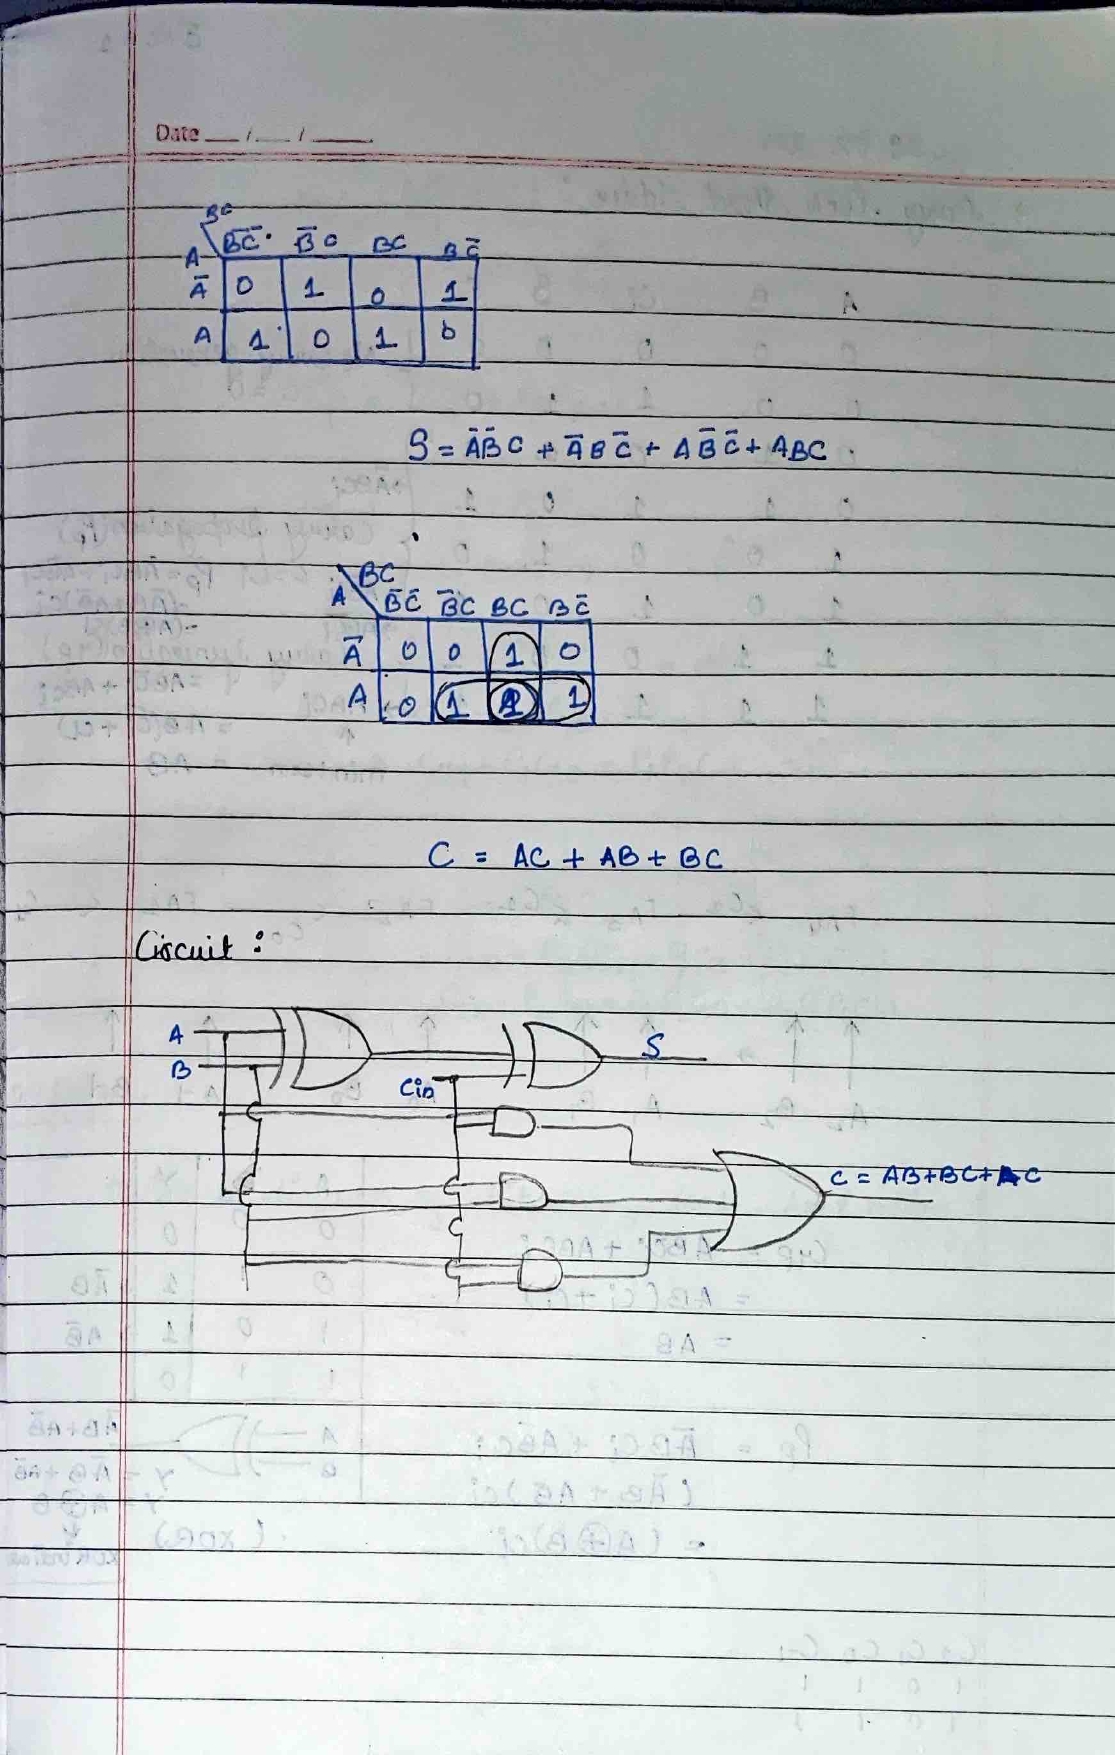 Date __/__/____
BC
A B̅C̅ B̅C BC BC̅
A̅ 0 1 0 1
A 1 0 1 0
S = A̅B̅C + A̅BC̅ + AB̅C̅ + ABC
BC
A B̅C̅ B̅C BC BC̅
A̅ 0 0 1 0
A 0 1 1 1
C = AC + AB + BC
Circuit :
A
B
Cin
S
C = AB+BC+AC